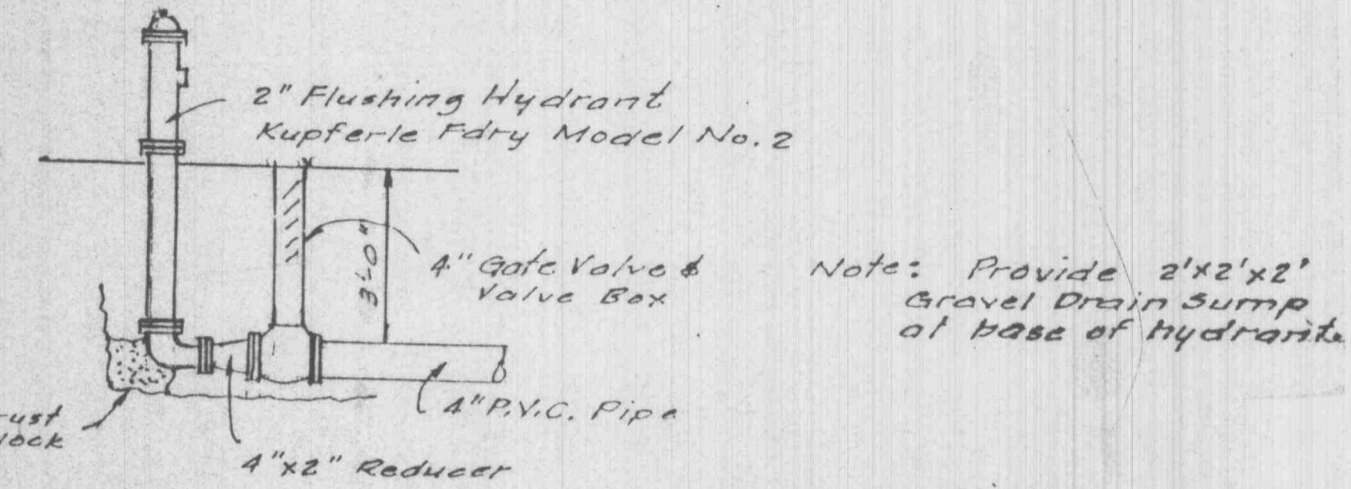 2" Flushing Hydrant
Kupferle Fdry Model No. 2
3'-0"
4" Gate Valve &
Valve Box
Note: Provide 2'x2'x2'
Gravel Drain Sump
at base of hydrants
4" P.V.C. Pipe
rust
lock
4"x2" Reducer